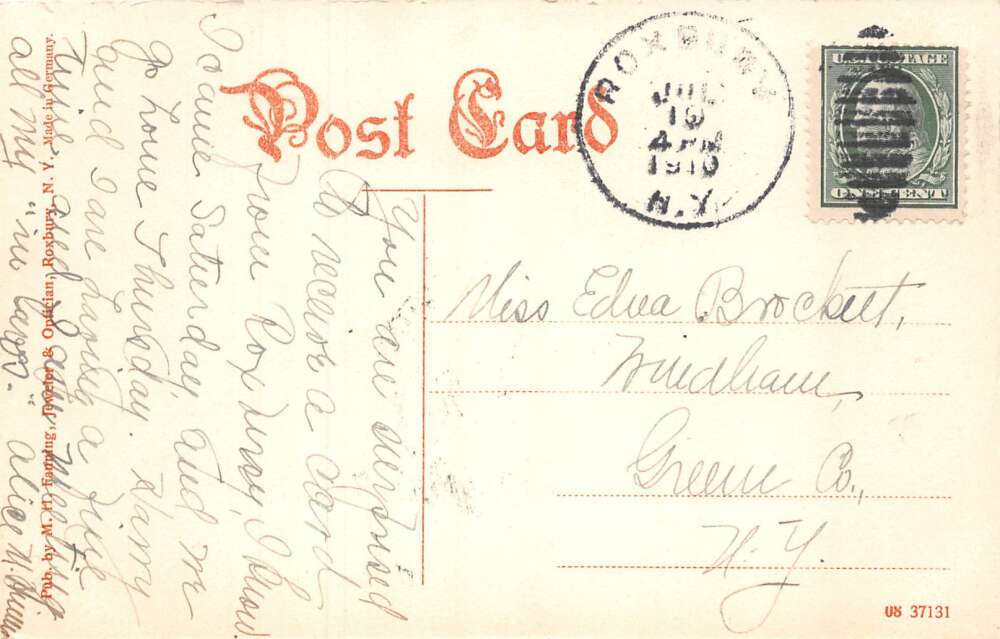 Post Card
ROXBURY
JUL
19
4 PM
1910
N.Y.
U.S. POSTAGE
ONE CENT
Miss Edna Brockett,
Windham,
Greene Co.,
N. Y.
You are surprised
to receive a card
from Roxbury, I know
I came Saturday, and we
go home Thursday. Harry
and I are having a fine
time, and I am
all my "in laws." Alice
Pub. by M. H. Fanning, Jeweler & Optician, Roxbury, N. Y. Made in Germany.
37131